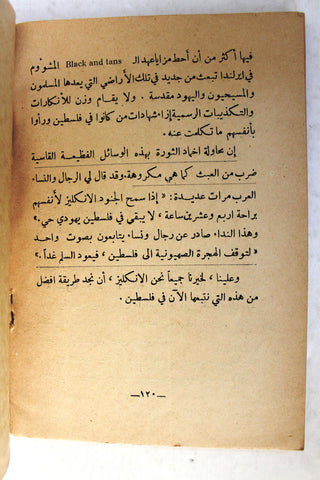 فيها أكثر من أن أحط مزايا عهد الـ Black and tans المشؤوم
في ايرلندا تبعث من جديد في تلك الأراضي التي يعدها المسلمون
والمسيحيون واليهود مقدسة . ولا يقام وزن للانكارات
والتكذيبات الرسمية إزاء شهادات من كانوا في فلسطين ورأوا
بأنفسهم ما تكلمت عنه .
إن محاولة اخماد الثورة بهذه الوسائل الفظيعة القاسية
ضرب من العبث كما هي مكروهة . وقد قال لي الرجال والنساء
العرب مرات عديدة : « إذا سمح الجنود الانكليز لأنفسهم
براحة اربع وعشرين ساعة ، لا يبقى في فلسطين يهودي حي . »
وهذا النداء صادر عن رجال ونساء يتابعون بصوت واحد
« لتوقف الهجرة الصهيونية الى فلسطين ، فيعود السلم غداً . »
وعلينا ، لخيرنا جميعاً نحن الانكليز ، أن نجد طريقة افضل
من هذه التي نتبعها الآن في فلسطين .
—١٢٠—